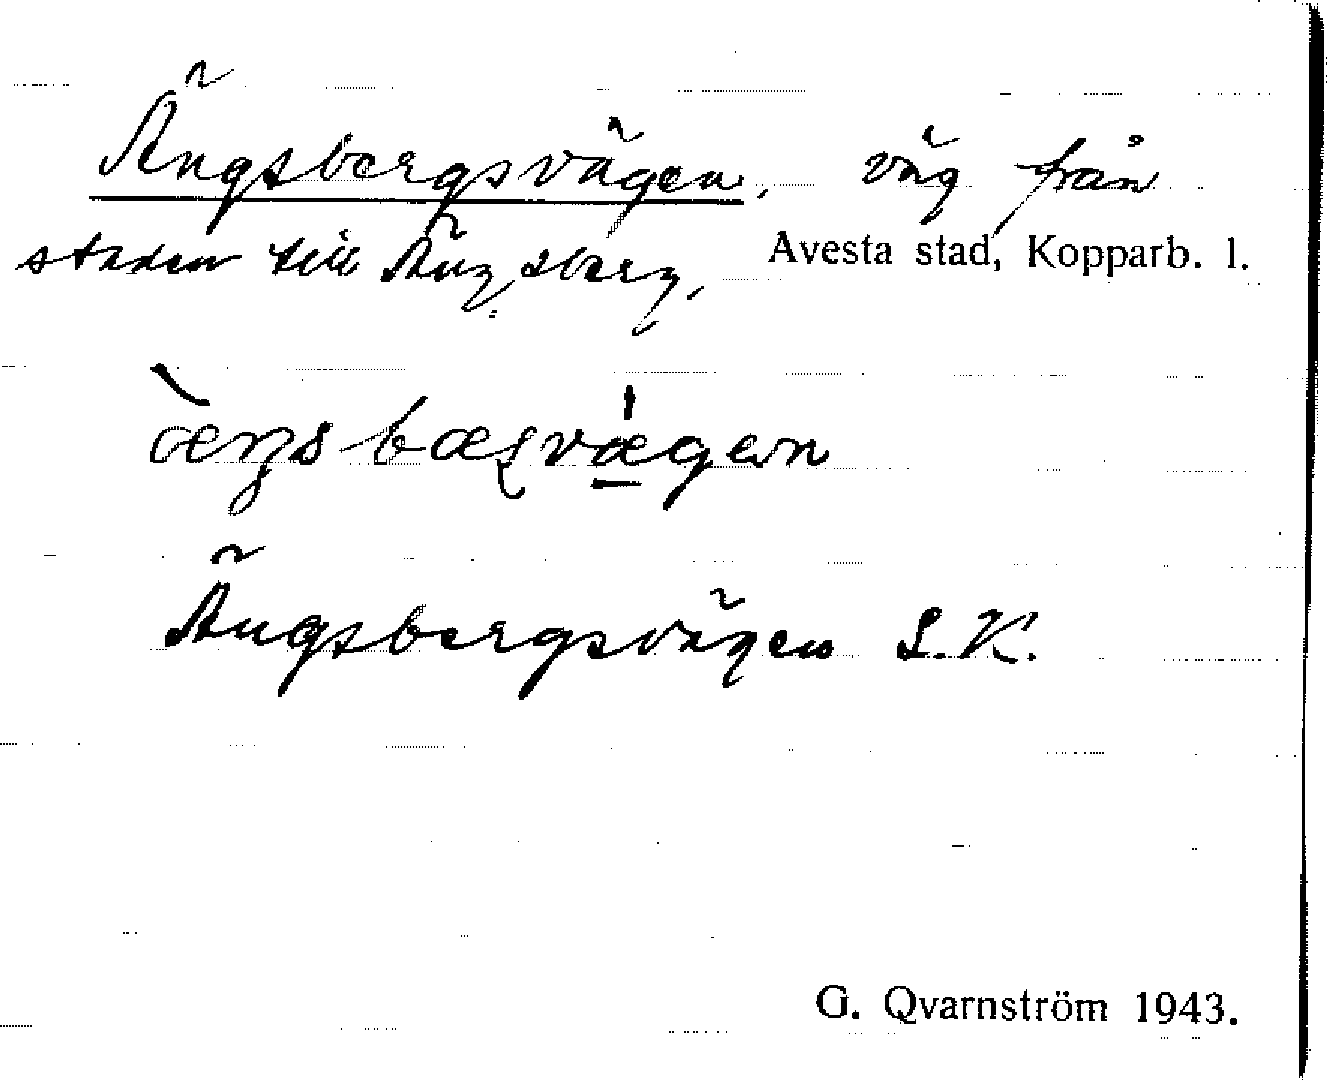 Ängsbergsvägen, väg från
staden till Ängsberg,
Avesta stad, Kopparb. l.
Ängsbergsvägen S.K.
G. Qvarnström 1943.